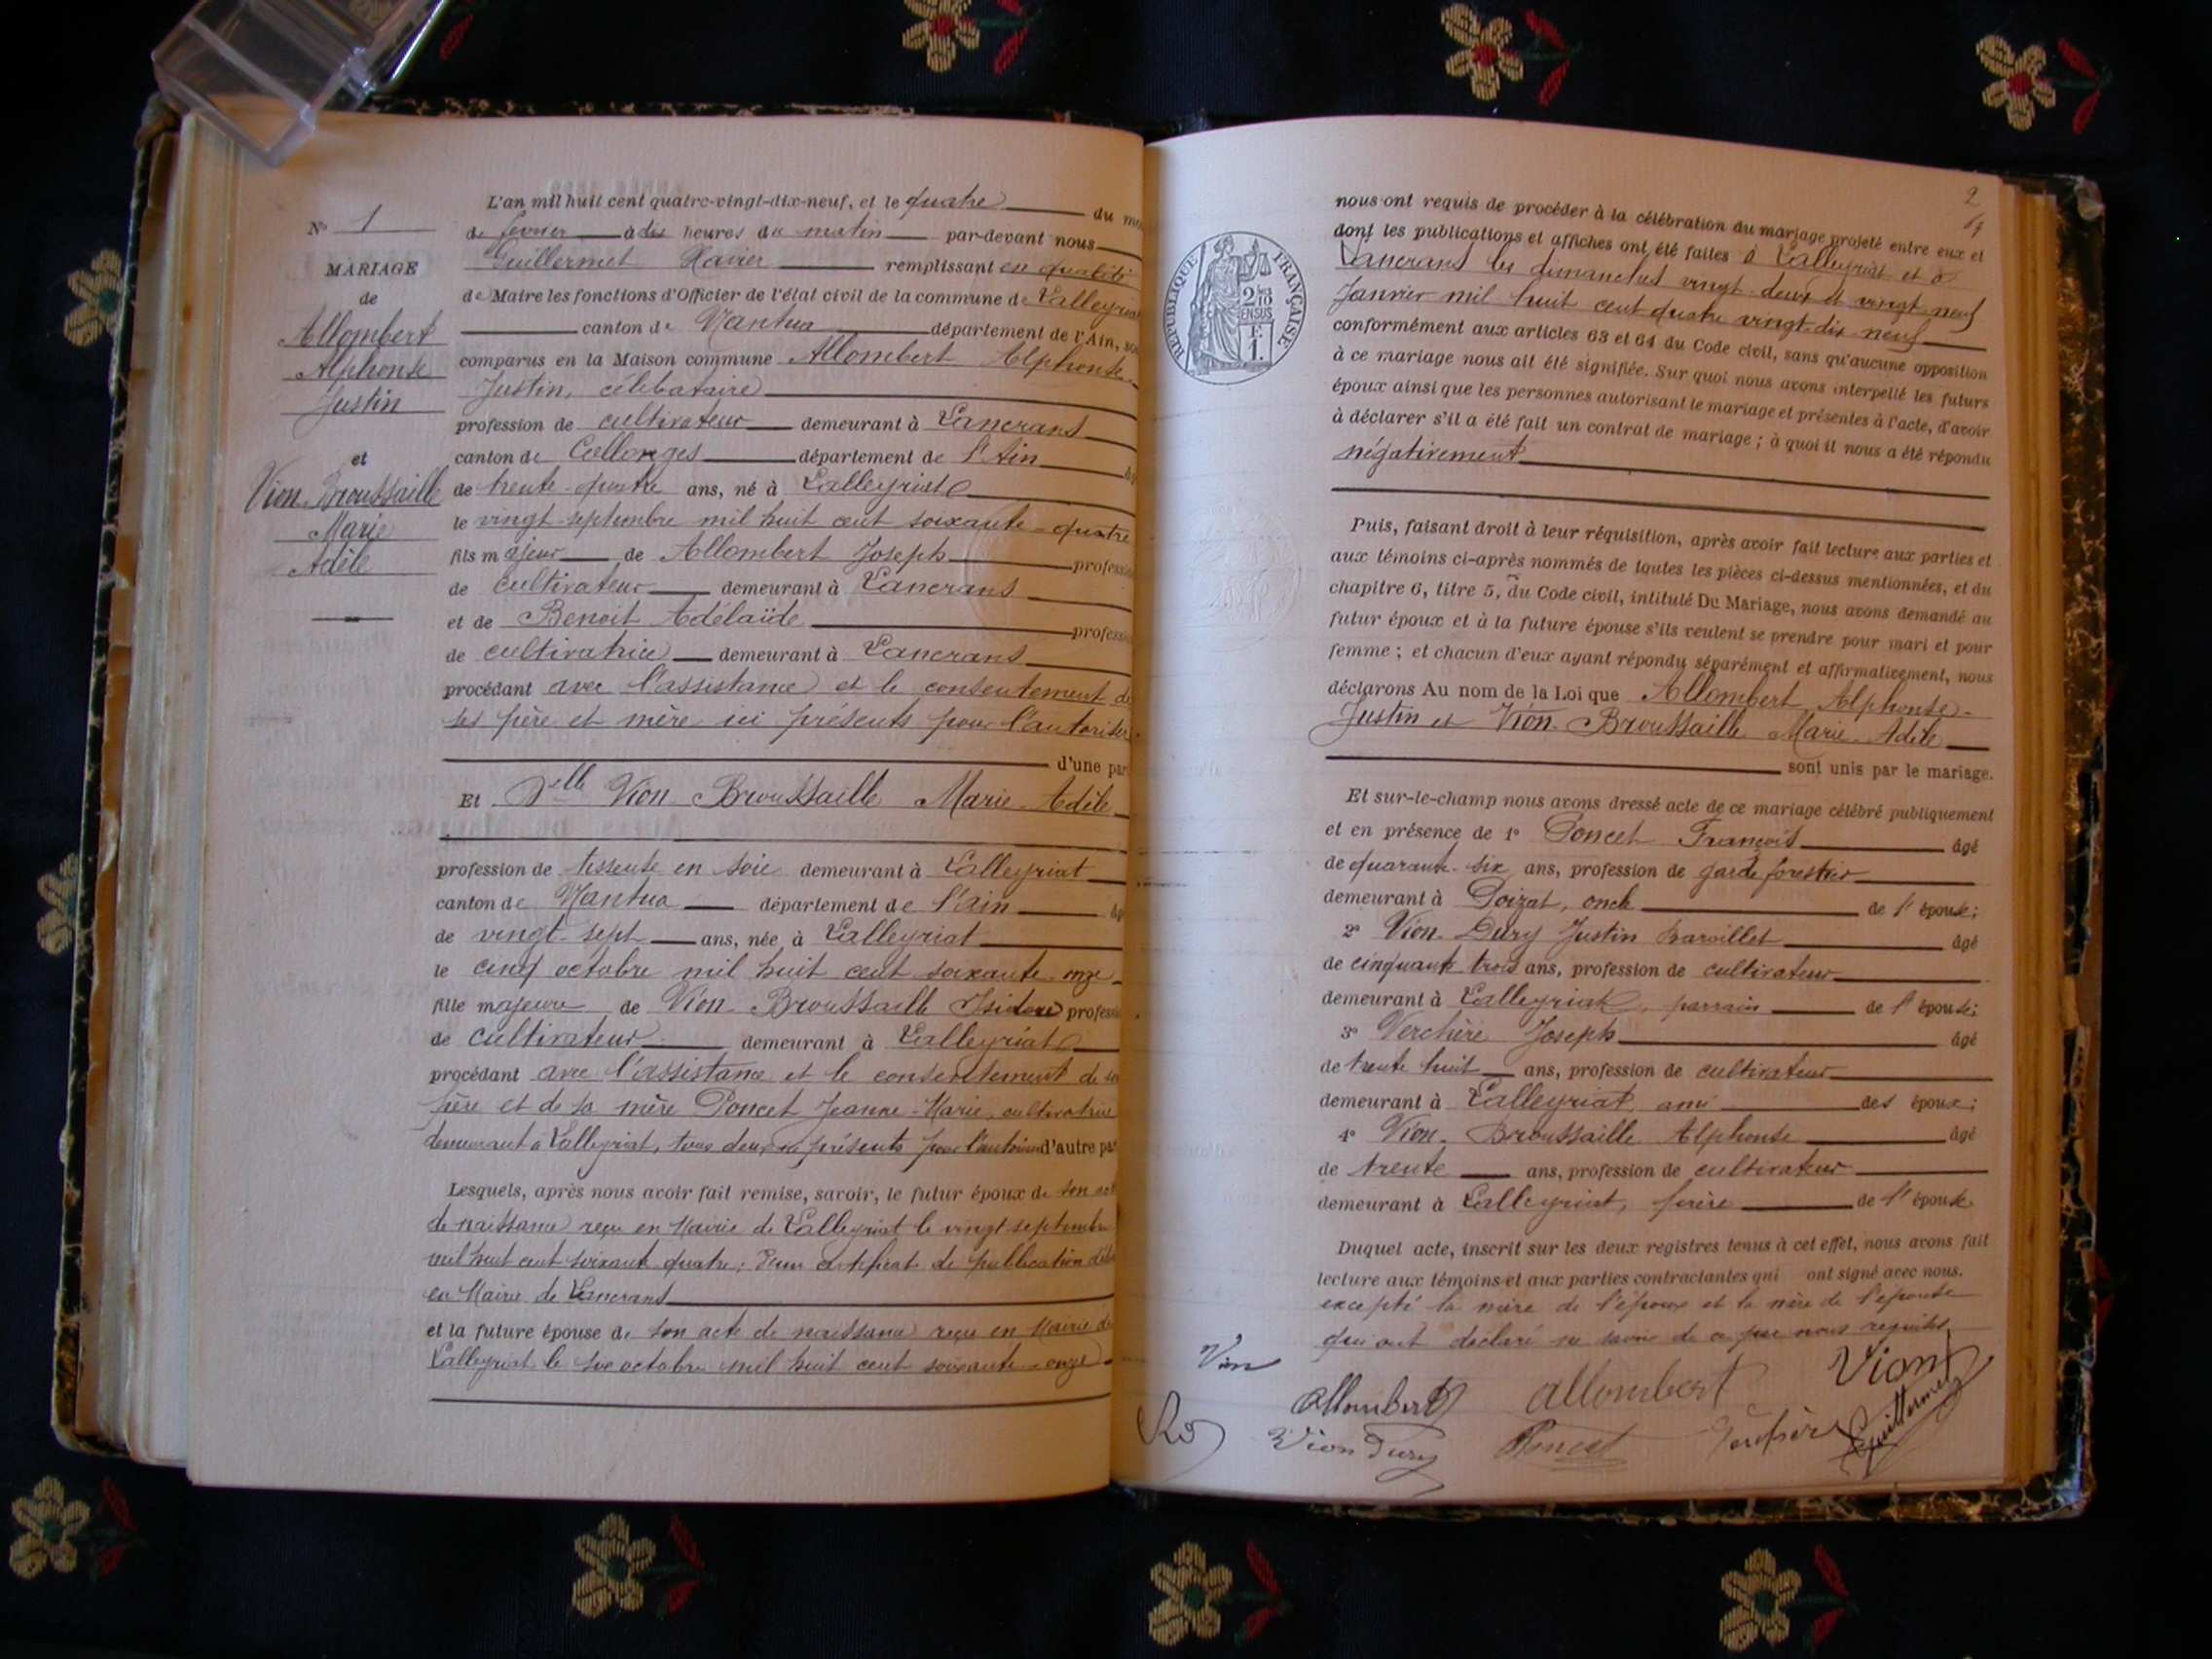 N° 1
MARIAGE
de
Allombert
Alphonse
Justin
et
Vion-Broussaille
Marie
Adèle
L'an mil huit cent quatre-vingt-dix-neuf, et le quatre du
de février à dix heures du matin par-devant nous
Guillermet Xavier remplissant en qualité
de Maire les fonctions d'Officier de l'état civil de la commune de Lalleyriat
canton de Nantua département de l'Ain,
comparus en la Maison commune Allombert Alphonse
Justin, célibataire
profession de cultivateur demeurant à Lancrans
canton de Collonges département de l'Ain
de trente-quatre ans, né à Lalleyriat
le vingt-septembre mil huit cent soixante-quatre
fils majeur de Allombert Joseph profession
de cultivateur demeurant à Lancrans
et de Benoit Adélaïde profession
de cultivatrice demeurant à Lancrans
procédant avec l'assistance et le consentement de
ses père et mère ici présents pour l'autoriser
d'une part
Et Delle Vion-Broussaille Marie-Adèle
profession de tisseuse en soie demeurant à Lalleyriat
canton de Nantua département de l'Ain
de vingt-sept ans, née à Lalleyriat
le cinq octobre mil huit cent soixante-onze
fille majeure de Vion-Broussaille Isidore profession
de cultivateur demeurant à Lalleyriat
procédant avec l'assistance et le consentement de son
père et de sa mère Poncet Jeanne-Marie, cultivatrice
demeurant à Lalleyriat, tous deux présents pour l'autoriser d'autre part
Lesquels, après nous avoir fait remise, savoir, le futur époux de son
de naissance reçu en Mairie de Lalleyriat le vingt septembre
mil huit cent soixante-quatre; d'un certificat de publication
en Mairie de Lancrans
et la future épouse de son acte de naissance reçu en Mairie de
Lalleyriat le six octobre mil huit cent soixante-onze
2
RÉPUBLIQUE FRANÇAISE
2/10 EN SUS
1 F.
nous ont requis de procéder à la célébration du mariage projeté entre eux et
dont les publications et affiches ont été faites à Lalleyriat et à
Lancrans les dimanches vingt-deux et vingt-neuf
Janvier mil huit cent quatre vingt-dix-neuf
conformément aux articles 63 et 64 du Code civil, sans qu'aucune opposition
à ce mariage nous ait été signifiée. Sur quoi nous avons interpellé les futurs
époux ainsi que les personnes autorisant le mariage et présentes à l'acte, d'avoir
à déclarer s'il a été fait un contrat de mariage ; à quoi il nous a été répondu
négativement
Puis, faisant droit à leur réquisition, après avoir fait lecture aux parties et
aux témoins ci-après nommés de toutes les pièces ci-dessus mentionnées, et du
chapitre 6, titre 5, du Code civil, intitulé Du Mariage, nous avons demandé au
futur époux et à la future épouse s'ils veulent se prendre pour mari et pour
femme ; et chacun d'eux ayant répondu séparément et affirmativement, nous
déclarons Au nom de la Loi que Allombert Alphonse-
Justin et Vion-Broussaille Marie-Adèle
sont unis par le mariage.
Et sur-le-champ nous avons dressé acte de ce mariage célébré publiquement
et en présence de 1° Poncet François âgé
de quarante-six ans, profession de garde forestier
demeurant à Poizat, oncle de l'épouse;
2° Vion-Dury Justin âgé
de cinquante trois ans, profession de cultivateur
demeurant à Lalleyriat, parrain de l'épouse;
3° Verchère Joseph âgé
de trente huit ans, profession de cultivateur
demeurant à Lalleyriat, ami des époux;
4° Vion-Broussaille Alphonse âgé
de trente ans, profession de cultivateur
demeurant à Lalleyriat, frère de l'épouse
Duquel acte, inscrit sur les deux registres tenus à cet effet, nous avons fait
lecture aux témoins et aux parties contractantes qui ont signé avec nous.
excepté la mère de l'époux et la mère de l'épouse
qui ont déclaré ne savoir de ce par nous requises
Vion
Allombert Allombert Vion
Vion Dury Poncet Guillermet